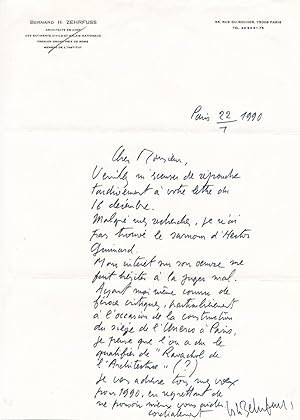 BERNARD H. ZEHRFUSS
ARCHITECTE EN CHEF
DES BATIMENTS CIVILS ET PALAIS NATIONAUX
PREMIER GRAND PRIX DE ROME
MEMBRE DE L'INSTITUT
RUE DU ROCHER, 75008 PARIS
TEL.
Paris 22/1 1990
Cher Monsieur,
Veuillez m'excuser de répondre
tardivement à votre lettre du
16 décembre.
Malgré mes recherches, je n'ai
pas trouvé le surnom d'Hector
Guimard.
Mon intérêt sur son oeuvre me
fait hésiter à la juger mal.
Ayant moi-même connu de
féroces critiques, particulièrement
à l'occasion de la construction
du siège de l'Unesco à Paris,
je pense que l'on a dû le
qualifier de "Ravachol de
l'Architecture" (?)
Je vous adresse tous mes voeux
pour 1990, en regrettant de
ne pouvoir mieux vous
cordialement
BHZehrfuss